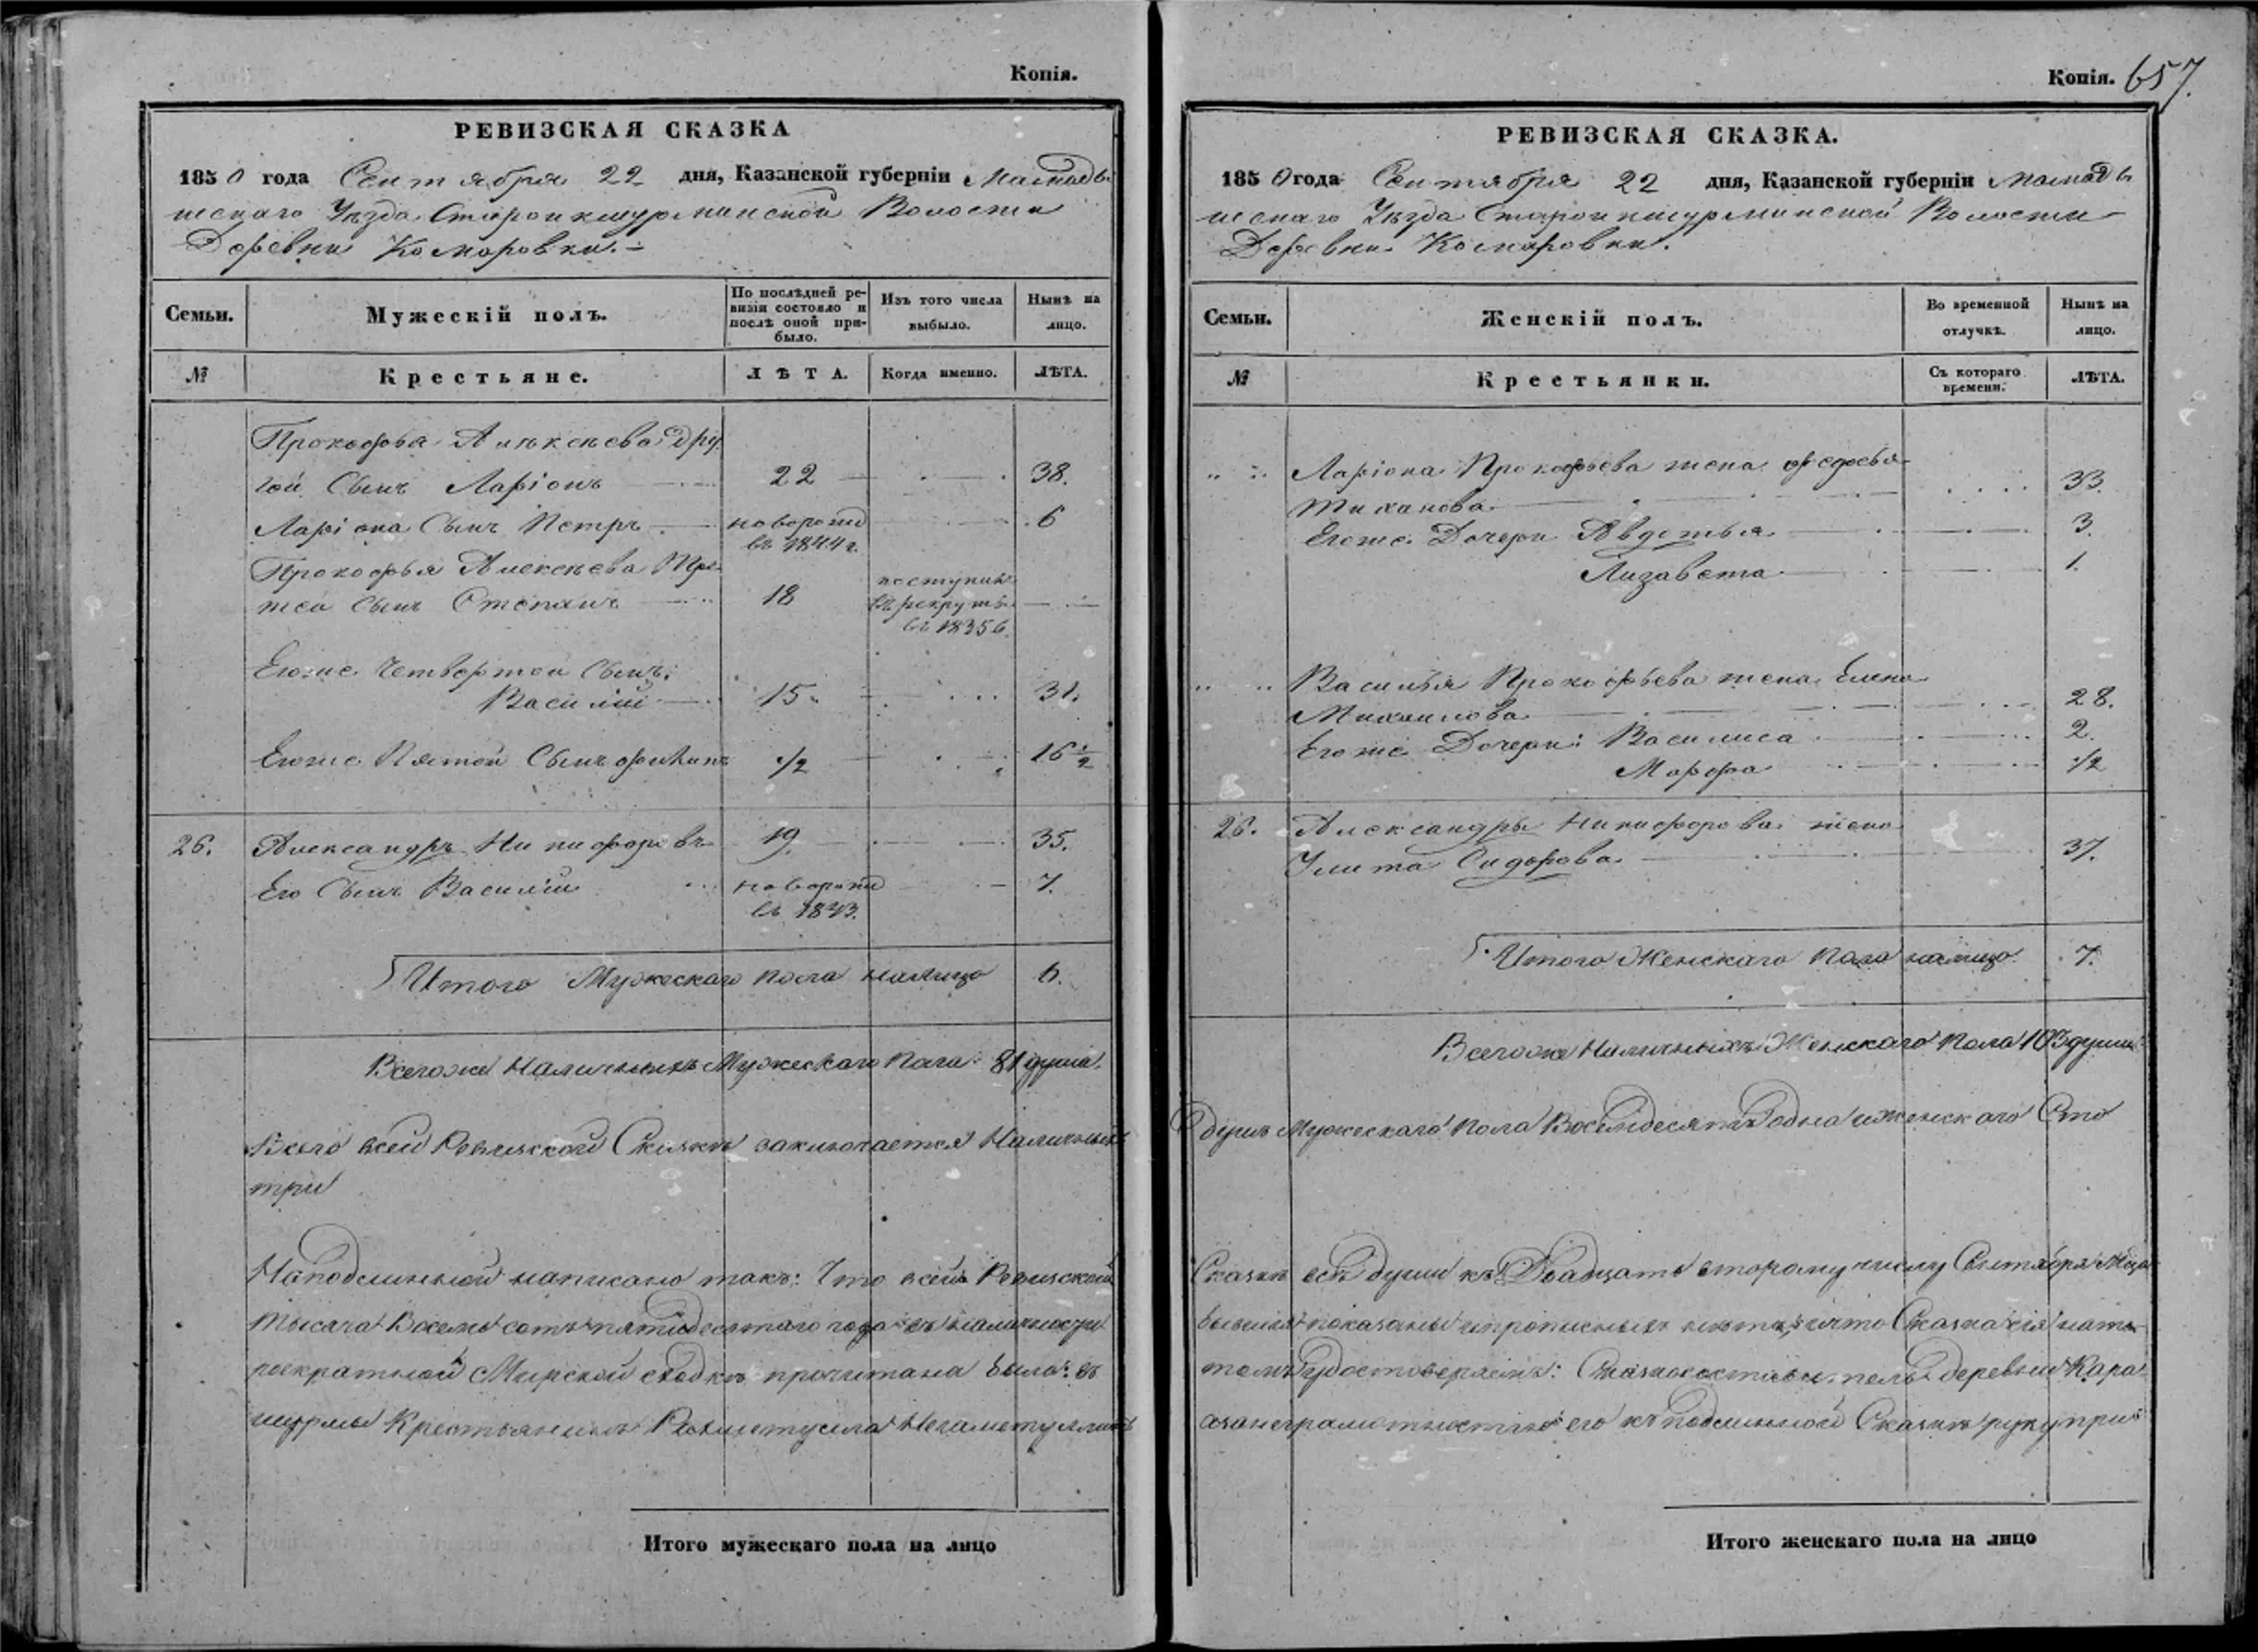 Копія.
РЕВИЗСКАЯ СКАЗКА
1850 года Сентября 22 дня, Казанской губерніи Мамады
шскаго Уѣзда Старокшурминской Волости
Деревни Комаровки.
Семьи.
Мужескій полъ.
По послѣдней ре-
визіи состояло и
послѣ оной при-
было.
Изъ того числа
выбыло.
Нынѣ на
лицо.
№
Крестьяне.
ЛѢТА.
Когда именно.
ЛѢТА.
Прокофья Алексѣева дру
гой Сынъ Ларіонъ 22 38.
Ларіона Сынъ Петръ новорожд 6
въ 1844 г.
Прокофья Алексѣева Тре-
тей Сынъ Степанъ 18 поступилъ
въ рекруты
въ 1835 г.
Егоже Четвертой Сынъ:
Василій 15 31.
Егоже Пятой Сынъ Филипъ 1/2 16 1/2
26. Александръ Никифоровъ 19. 35.
Его Сынъ Василій новорожд 7.
въ 1843.
Итого Мужескаго пола налицо 6.
Всегоже Наличныхъ Мужескаго пола 81 душа.
Всего всей Ревизской Сказкѣ заключается Наличныхъ
три
Наподлинной написано такъ: Что всей Ревизской
тысяча Восемь сотъ пятидесятаго года въ наличности
рекратной Мирской сходкѣ прочитана была: въ
шурмы Крестьянинъ
Итого мужескаго пола на лицо
Копія. 657.
РЕВИЗСКАЯ СКАЗКА.
1850 года Сентября 22 дня, Казанской губерніи Мамады
шскаго Уѣзда Старокшурминской Волости
Деревни Комаровки.
Семьи.
Женскій полъ.
Во временной
отлучкѣ.
Нынѣ на
лицо.
№
Крестьянки.
Съ котораго
времени.
ЛѢТА.
Ларіона Прокофьева жена Федосья
Тиханова 33.
Егоже Дочери Авдотья 3.
Лизавета 1.
Василья Прокофьева жена Елена
Михаилова 28.
Егоже Дочери: Василиса 2.
Марфа 1/2
26. Александры Никифорова жена
Улита Сидорова 37.
Итого Женскаго пола налицо 7.
Всегоже Наличныхъ Женскаго пола 103 души
душъ Мужескаго пола Восемдесятъ одна иженскаго Сто
Сказкѣ всѣ души къ Двадцать второму числу Сентября Мѣся
показаны ипрописныхъ нѣтъ, ичто Сказка сія натъ
томъ удостовѣряемъ: деревни Кара
азанеграмотностію его къ подлинной Сказкѣ руку при
Итого женскаго пола на лицо